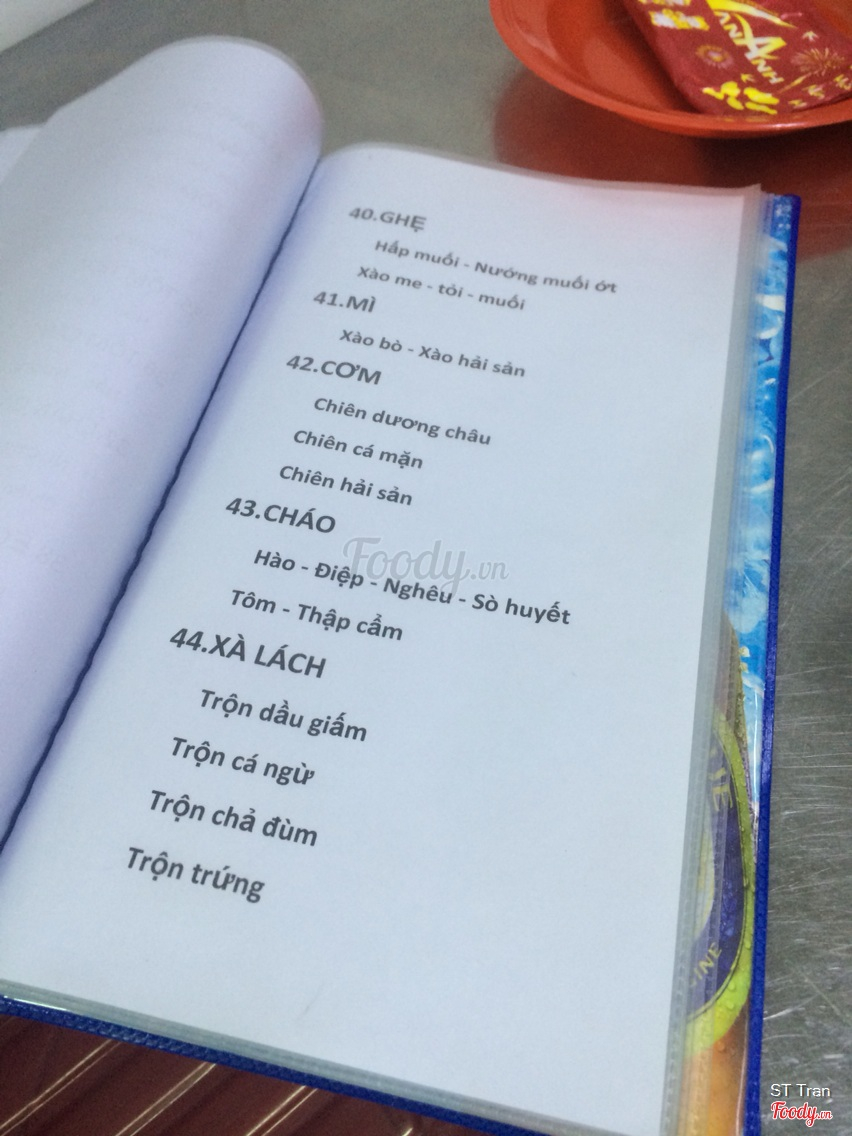 40.GHẸ
Hấp muối - Nướng muối ớt
Xào me - tỏi - muối
41.MÌ
Xào bò - Xào hải sản
42.CƠM
Chiên dương châu
Chiên cá mặn
Chiên hải sản
43.CHÁO
Hào - Điệp - Nghêu - Sò huyết
Tôm - Thập cẩm
44.XÀ LÁCH
Trộn dầu giấm
Trộn cá ngừ
Trộn chả đùm
Trộn trứng
Foody.vn
ST Tran
Foody.vn